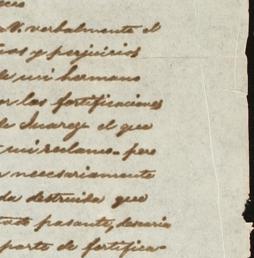 V. verbalmente el
y perjuicios
de mi hermano
en las fortificaciones
de Juarez el que
mi reclamo. pero
necesariamente
da destruida que
pasante, descaria
parte de fortifica-